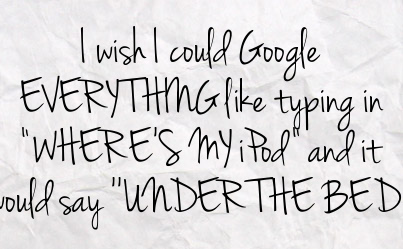 I wish I could Google
EVERYTHING like typing in
"WHERE'S MY iPod" and it
would say "UNDER THE BED